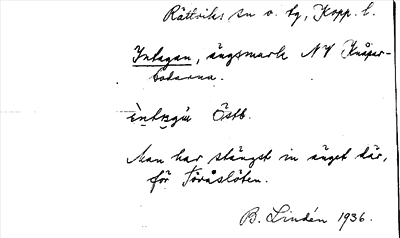 Rättviks sn o. tg, Kopp. l.
Intagan, ängsmark NV Knåper-
bodarna.
Östb.
Man har stängst in änget där,
för Töråslöten.
B. Lindén 1936.